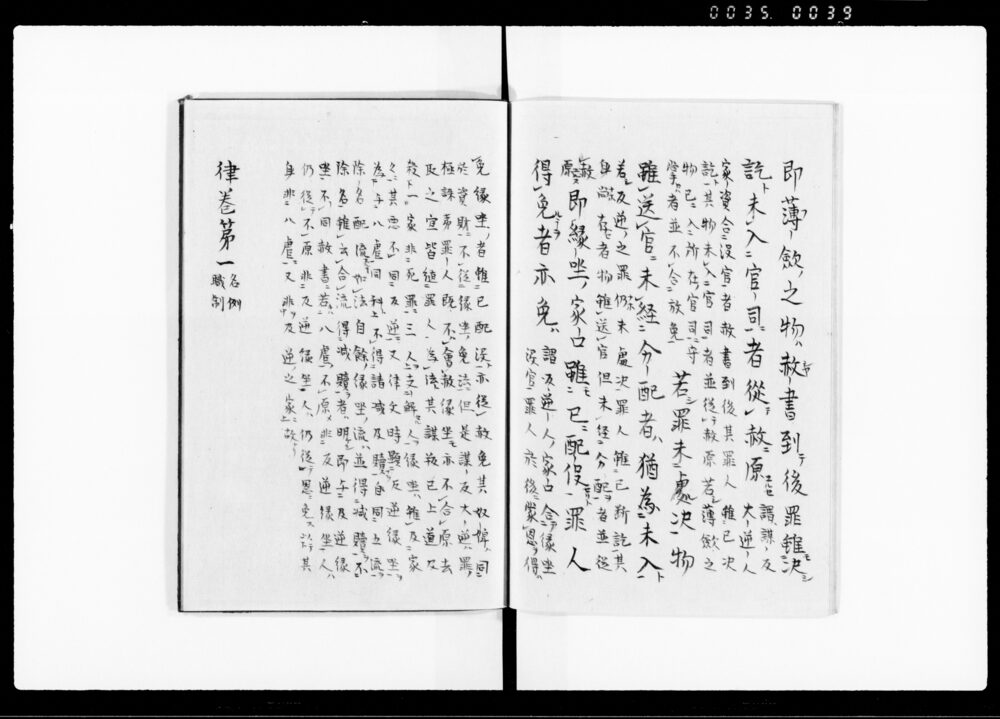 0035. 0039
即薄斂之物赦書到後罪雖決
訖未入官司者從赦原 謂謀反大逆人
家資合沒官者赦書到後其罪人雖已決
訖其物未入官司者並從赦原若薄斂之
物已入所在官司守
掌者並不合放免 若罪未處決物
雖送官未經分配者猶為未入
若反逆之罪仍未處決罪人雖已断訖其
身尚存者物雖送官但未經分配者並從
赦原 即縁坐家口雖已配没罪人
得免者亦免 謂反逆人家口合縁坐没官罪人於後蒙恩得
免縁坐者雖已配没亦從赦免其奴婢同
於資財不從縁坐免法但是謀反大逆罪
極誅夷罪人既不會赦縁坐亦不合原去
取之宜皆随罪人為法其謀殺已上道及
殺一家非死罪三人支解人縁坐雖及家
人其悪不同反逆又律文特顕反逆縁坐
為与八虐同科不得請減及贖自同五流
除名配流如法自餘縁坐流並得減贖不
除名雖云合流得減贖者明即与反逆縁
坐不同赦書若八虐不原非反逆縁坐人
仍從不原非反逆縁坐人仍從恩免以其
身非八虐又非反逆之家故
律巻第一 名例
職制